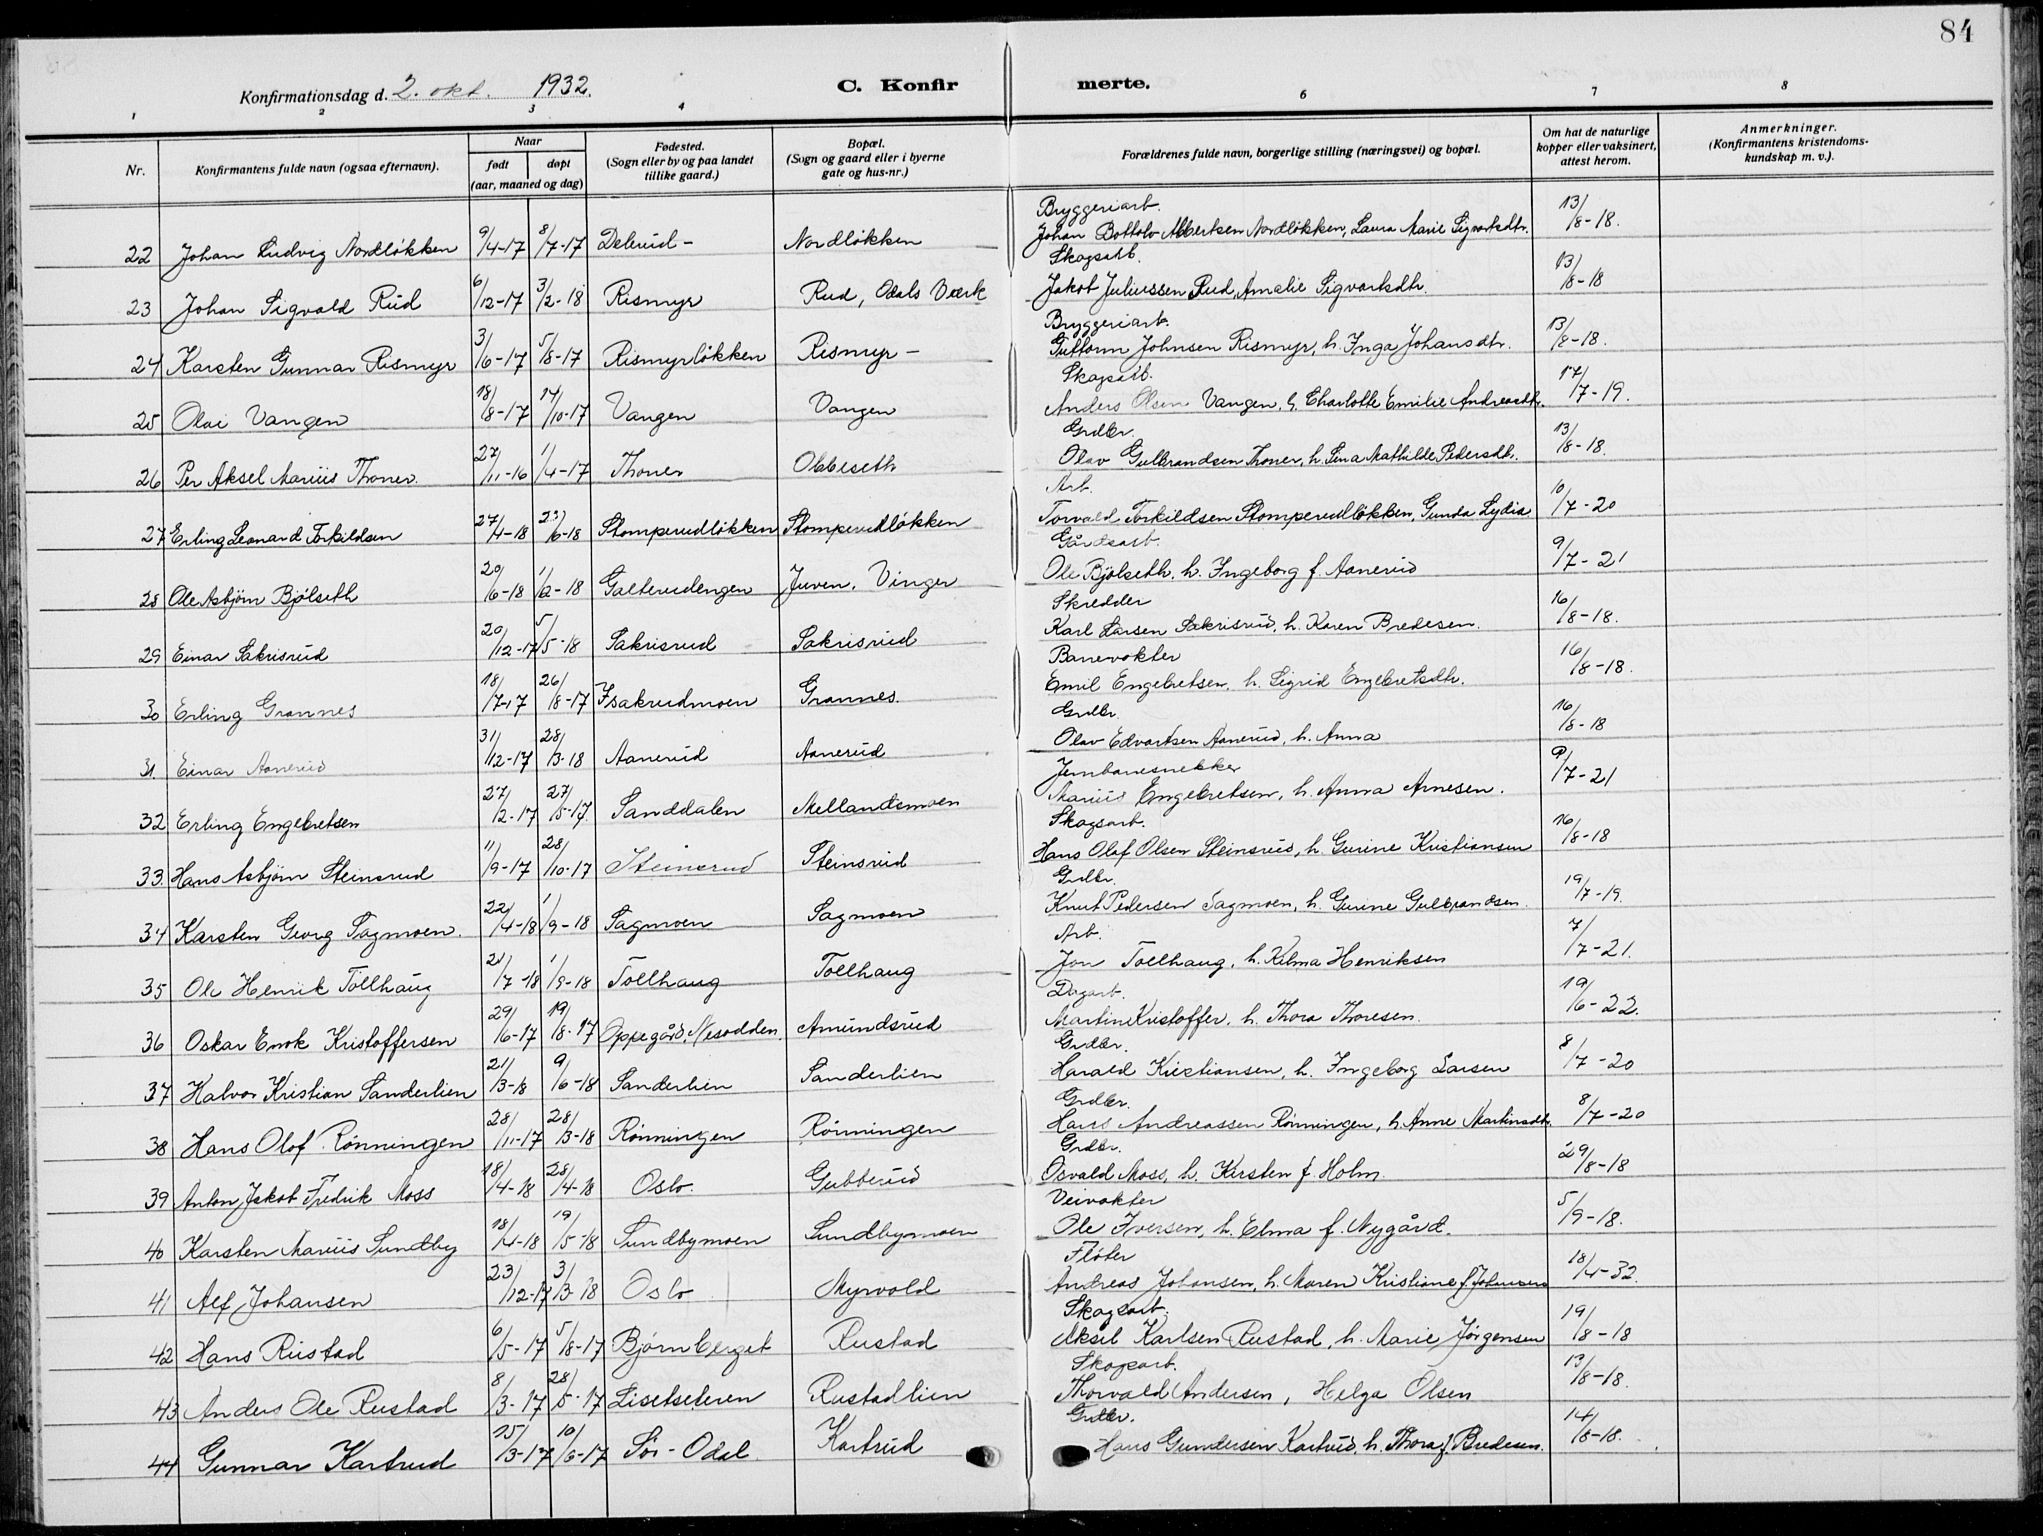 84
Konfirmationsdag d. 2. okt. 1932.
C. Konfirmerte.
1 2 3 4 6 7 8
Nr.
Konfirmantens fulde navn (ogsaa efternavn).
Naar født døpt (aar, maaned og dag)
Fødested. (Sogn eller by og paa landet tillike gaard.)
Bopæl. (Sogn og gaard eller i byerne gate og hus-nr.)
Forældrenes fulde navn, borgerlige stilling (næringsvei) og bopæl.
Om hat de naturlige kopper eller vaksinert, attest herom.
Anmerkninger. (Konfirmantens kristendoms-kundskap m. v.).
Bryggeriarb.
22 Johan Ludvig Nordløkken 9/4-17 8/7-17 Delerud - Nordløkken Johan Bottolv Albertsen Nordløkken, Laura Marie Sigvartsdtr. 13/8-18.
Skogsarb.
23 Johan Sigvald Rud 6/12-17 3/2-18 Rismyr Rud, Odals Værk Jakob Juliussen Rud, Amalie Sigvartsdtr. 13/8-18
Bryggeriarb.
24 Karsten Gunnar Rismyr 3/6-17 5/8-17 Rismyrløkken Rismyr - Guttorm Johnsen Rismyr, h. Inga Johansdtr. 13/8-18.
Skogsarb.
25 Olai Vangen 18/8-17 14/10-17 Vangen Vangen Anders Olsen Vangen, h. Charlotte Emilie Andreasdtr. 17/7-19.
Grdbr.
26 Per Aksel Marius Thoner. 27/11-16 1/4-17 Thoner Obbeseth Olav Gulbrandsen Thoner, h. Lina Mathilde Pedersdt. 13/8-18.
Arb.
27 Erling Leonard Torkildsen 27/4-18 23/6-18 Stomperudløkken Stomperudløkken Torvald Torkildsen Stomperudløkken, Gunda Lydia 10/7-20
Gårdsarb.
28 Ole Asbjørn Bjølseth 20/6-18 1/2-18 Galterudengen Juven, Vinger Ole Bjølseth, h. Ingeborg f. Aanerud 9/7-21
Skredder
29 Einar Sakrisrud 20/12-17 5/5-18 Sakrisrud Sakrisrud Karl Larsen Sakrisrud, h. Karen Bredesen. 16/8-18.
Banevokter
30 Erling Grannes 18/7-17 26/8-17 Isakrudmoen Grannes. Emil Engebretsen, h. Sigrid Engebretsdtr. 16/8-18.
Grdbr.
31 Einar Aanerud 31/12-17 28/3-18 Aanerud Aanerud Olav Edvartsen Aanerud, h. Anna 16/8-18
Jernbanesnekker
32 Erling Engebretsen 27/2-17 27/5-17. Sanddalen Mellandsmoen Marius Engebretsen, h. Anna Arnesen. 9/7-21
Skogsarb.
33. Hans Asbjørn Steinsrud 11/9-17 28/10-17 Steinsrud Steinsrud Hans Olaf Olsen Steinsrud, h. Gurine Kristiansen 16/8-18
Grdbr.
34 Karsten Georg Sagmoen. 22/4-18 1/9-18 Sagmoen Sagmoen Knut Pedersen Sagmoen, h. Gurine Gulbrandsen. 19/7-19.
Arb.
35 Ole Henrik Tollhaug 21/7-18 1/9-18 Tollhaug Tollhaug Jon Tollhaug, h. Kelma Henriksen 7/7-21.
Dagarb.
36 Oskar Enok Kristoffersen 29/6-17 19/8-17 Oppegård, Nesodden. Amundsrud Martin Kristoffer. h. Thora Thoresen. 19/6-22.
Grdbr.
37 Halvor Kristian Sanderlien 21/3-18 9/6-18 Sanderlien Sanderlien Harald Kristiansen, h. Ingeborg Larsen 8/7-20
Grdbr.
38 Hans Olof Rønningen 28/11-17 28/3-18 Rønningen Rønningen Hans Andreassen Rønningen, h. Anne Martinsdtr. 8/7-20
Grdbr.
39 Anton Jakob Fredrik Moss 18/4-18 28/4-18 Oslo. Gubberud Osvald Moss, h. Kirsten f. Holm 29/8-18
Veivokter
40 Karsten Marius Sundby 18/4-18 19/5-18 Sundbymoen Sundbymoen Ole Iversen, h. Elma f. Nygård. 5/9-18.
Fløter
41 Alf Johansen 23/12-17 3/3-18 Oslo Myrvold Andreas Johansen, h. Maren Kristiane f. Johansen 18/4-32.
Skogsarb.
42 Hans Rustad 6/5-17 5/8-17 Bjørnberget Rustad Aksel Karlsen Rustad, h. Marie Jørgensen 19/8-18
Skogsarb.
43 Anders Ole Rustad 8/3-17 28/5-17 Lisetseteren Rustadlien Thorvald Andersen, Helga Olsen 13/8-18.
Grdbr.
44 Gunnar Kartrud 15/3-17 10/6-17 Sør-Odal Kartrud Hans Gundersen Kartrud, h. Thora f. Bredesen. 14/8-18.